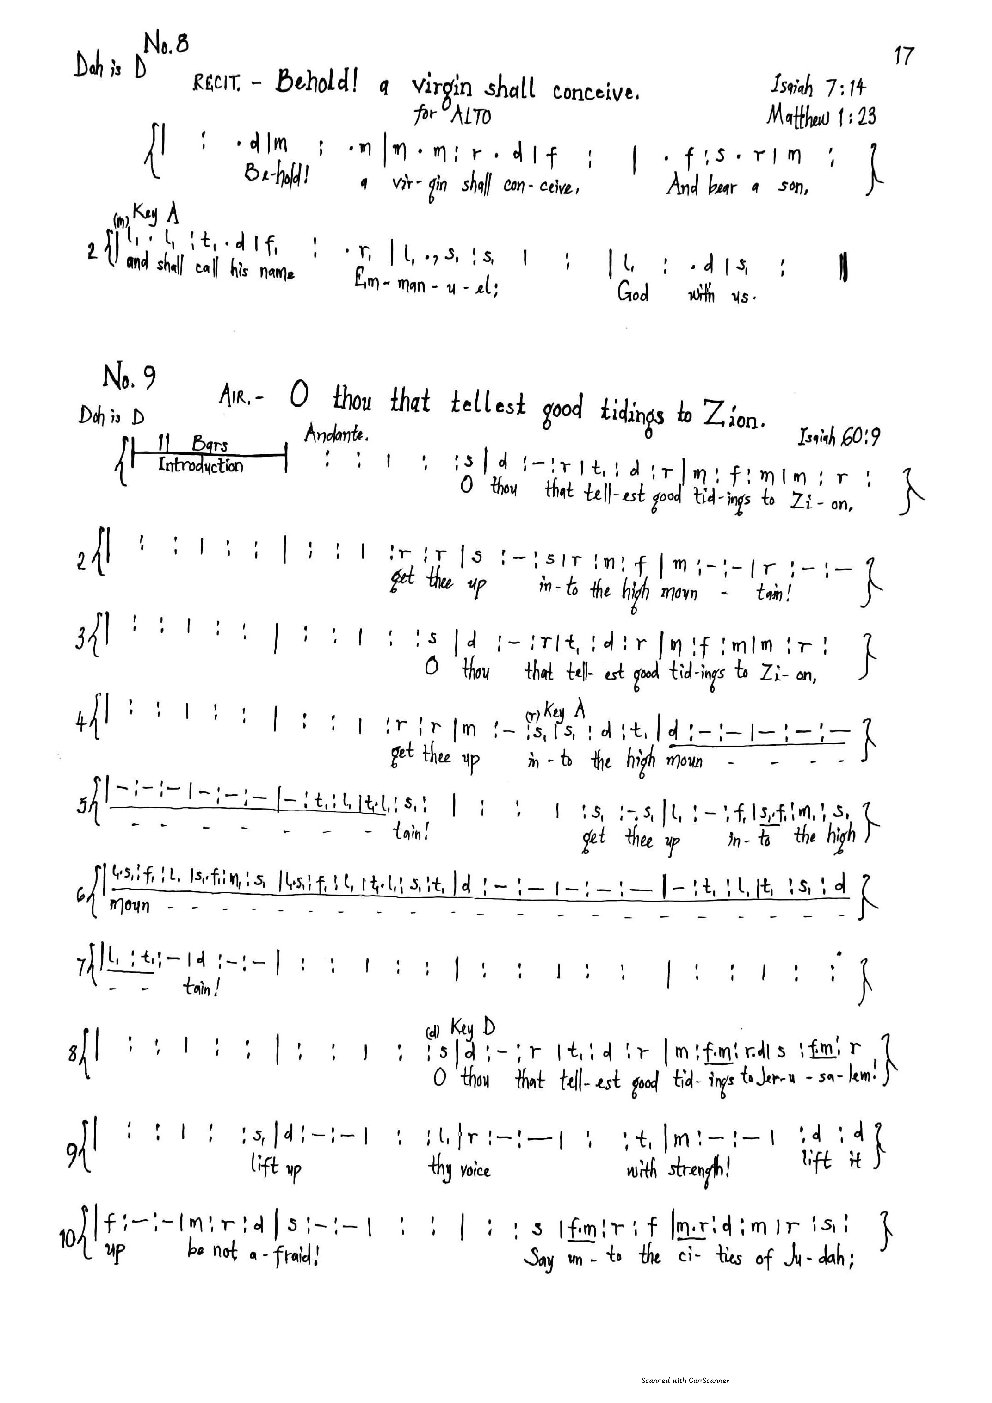 17
No. 8
Doh is D
RECIT. - Behold! a virgin shall conceive.
for ALTO
Isaiah 7:14
Matthew 1:23
{| : . d | m : . m | m . m : r . d | f : | . f : s . r | m : }
Be-hold! a vir-gin shall con-ceive, And bear a son,
(m) Key A
2 {| l, . l, : t, . d | f, : . r, | l, ., s, : s, | : | l, : . d | s, : ||
and shall call his name Em-man-u-el; God with us.
No. 9
AIR.- O thou that tellest good tidings to Zion.
Doh is D
Andante.
Isaiah 60:9
11 Bars
Introduction
{| : : | : : s | d : - : r | t, : d : r | m : f : m | m : r : }
O thou that tell-est good tid-ings to Zi-on,
2 {| : : | : : | : : | : r : r | s : - : s | r : m : f | m : - : - | r : - : - }
get thee up in-to the high moun - tain!
3 {| : : | : : | : : | : : s | d : - : r | t, : d : r | m : f : m | m : r : }
O thou that tell-est good tid-ings to Zi-on,
(r) Key A
4 {| : : | : : | : : | : r : r | m : - : s, | s, : d : t, | d : - : - | - : - : - }
get thee up in-to the high moun - - - -
5 {| - : - : - | - : - : - | - : t, : l, | t,.l, : s, : | : : | : s, : -.s, | l, : - : f, | s,.f, : m, : s, }
- - - - - - - tain! get thee up in-to the high
6 {| l,.s, : f, : l, | s,.f, : m, : s, | l,.s, : f, : l, | t,.l, : s, : t, | d : - : - | - : - : - | - : t, : l, | t, : s, : d }
moun - - - - - - - - - - - - - - -
7 {| l, : t, : - | d : - : - | : : | : : | : : | : : | : : | : : }
- - tain!
(d) Key D
8 {| : : | : : | : : | : : s | d : - : r | t, : d : r | m : f.m : r.d | s : f.m : r }
O thou that tell-est good tid-ings to Jer-u-sa-lem!
9 {| : : | : : s, | d : - : - | : : l, | r : - : - | : : t, | m : - : - | : d : d }
lift up thy voice with strength! lift it
10 {| f : - : - | m : r : d | s : - : - | : : | : : s | f.m : r : f | m.r : d : m | r : s, : }
up be not a-fraid! Say un-to the ci-ties of Ju-dah;
Scanned with CamScanner